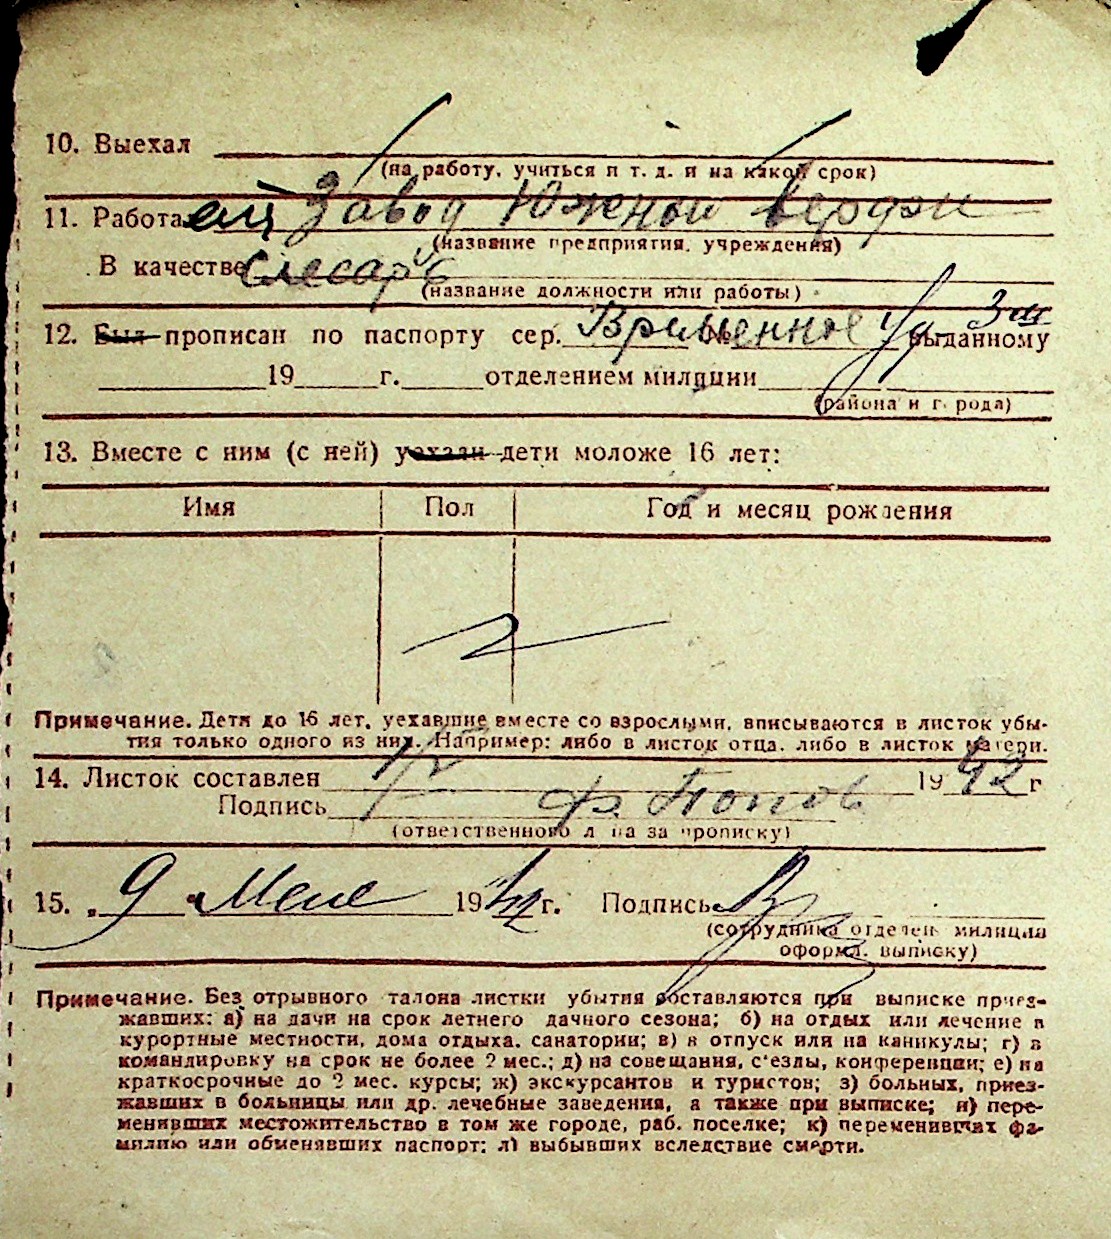 10. Выехал
(на работу, учиться и т. д. и на какой срок)
11. Работает Завод Южной верфи
(название предприятия, учреждения)
В качестве Слесарь
(название должности или работы)
12. Был прописан по паспорту сер. Временное Уд. 3 выданному
19 г. отделением милиции
(района и г. рода)
13. Вместе с ним (с ней) уехали дети моложе 16 лет:
Имя Пол Год и месяц рождения
Примечание. Дети до 16 лет, уехавшие вместе со взрослыми, вписываются в листок убы-
тия только одного из них. Например: либо в листок отца, либо в листок матери.
14. Листок составлен 1942 г
Подпись Попов
(ответственного лица за прописку)
15. „9“ Мая 1942 г. Подпись
(сотрудника отделен. милиции
оформл. выписку)
Примечание. Без отрывного талона листки убытия составляются при выписке приез-
жавших: а) на дачи на срок летнего дачного сезона; б) на отдых или лечение в
курортные местности, дома отдыха, санатории; в) в отпуск или на каникулы; г) в
командировку на срок не более 2 мес.; д) на совещания, с'езды, конференции; е) на
краткосрочные до 2 мес. курсы; ж) экскурсантов и туристов; з) больных, приез-
жавших в больницы или др. лечебные заведения, а также при выписке; и) пере-
менивших местожительство в том же городе, раб. поселке; к) переменивших фа-
милию или обменявших паспорт; л) выбывших вследствие смерти.